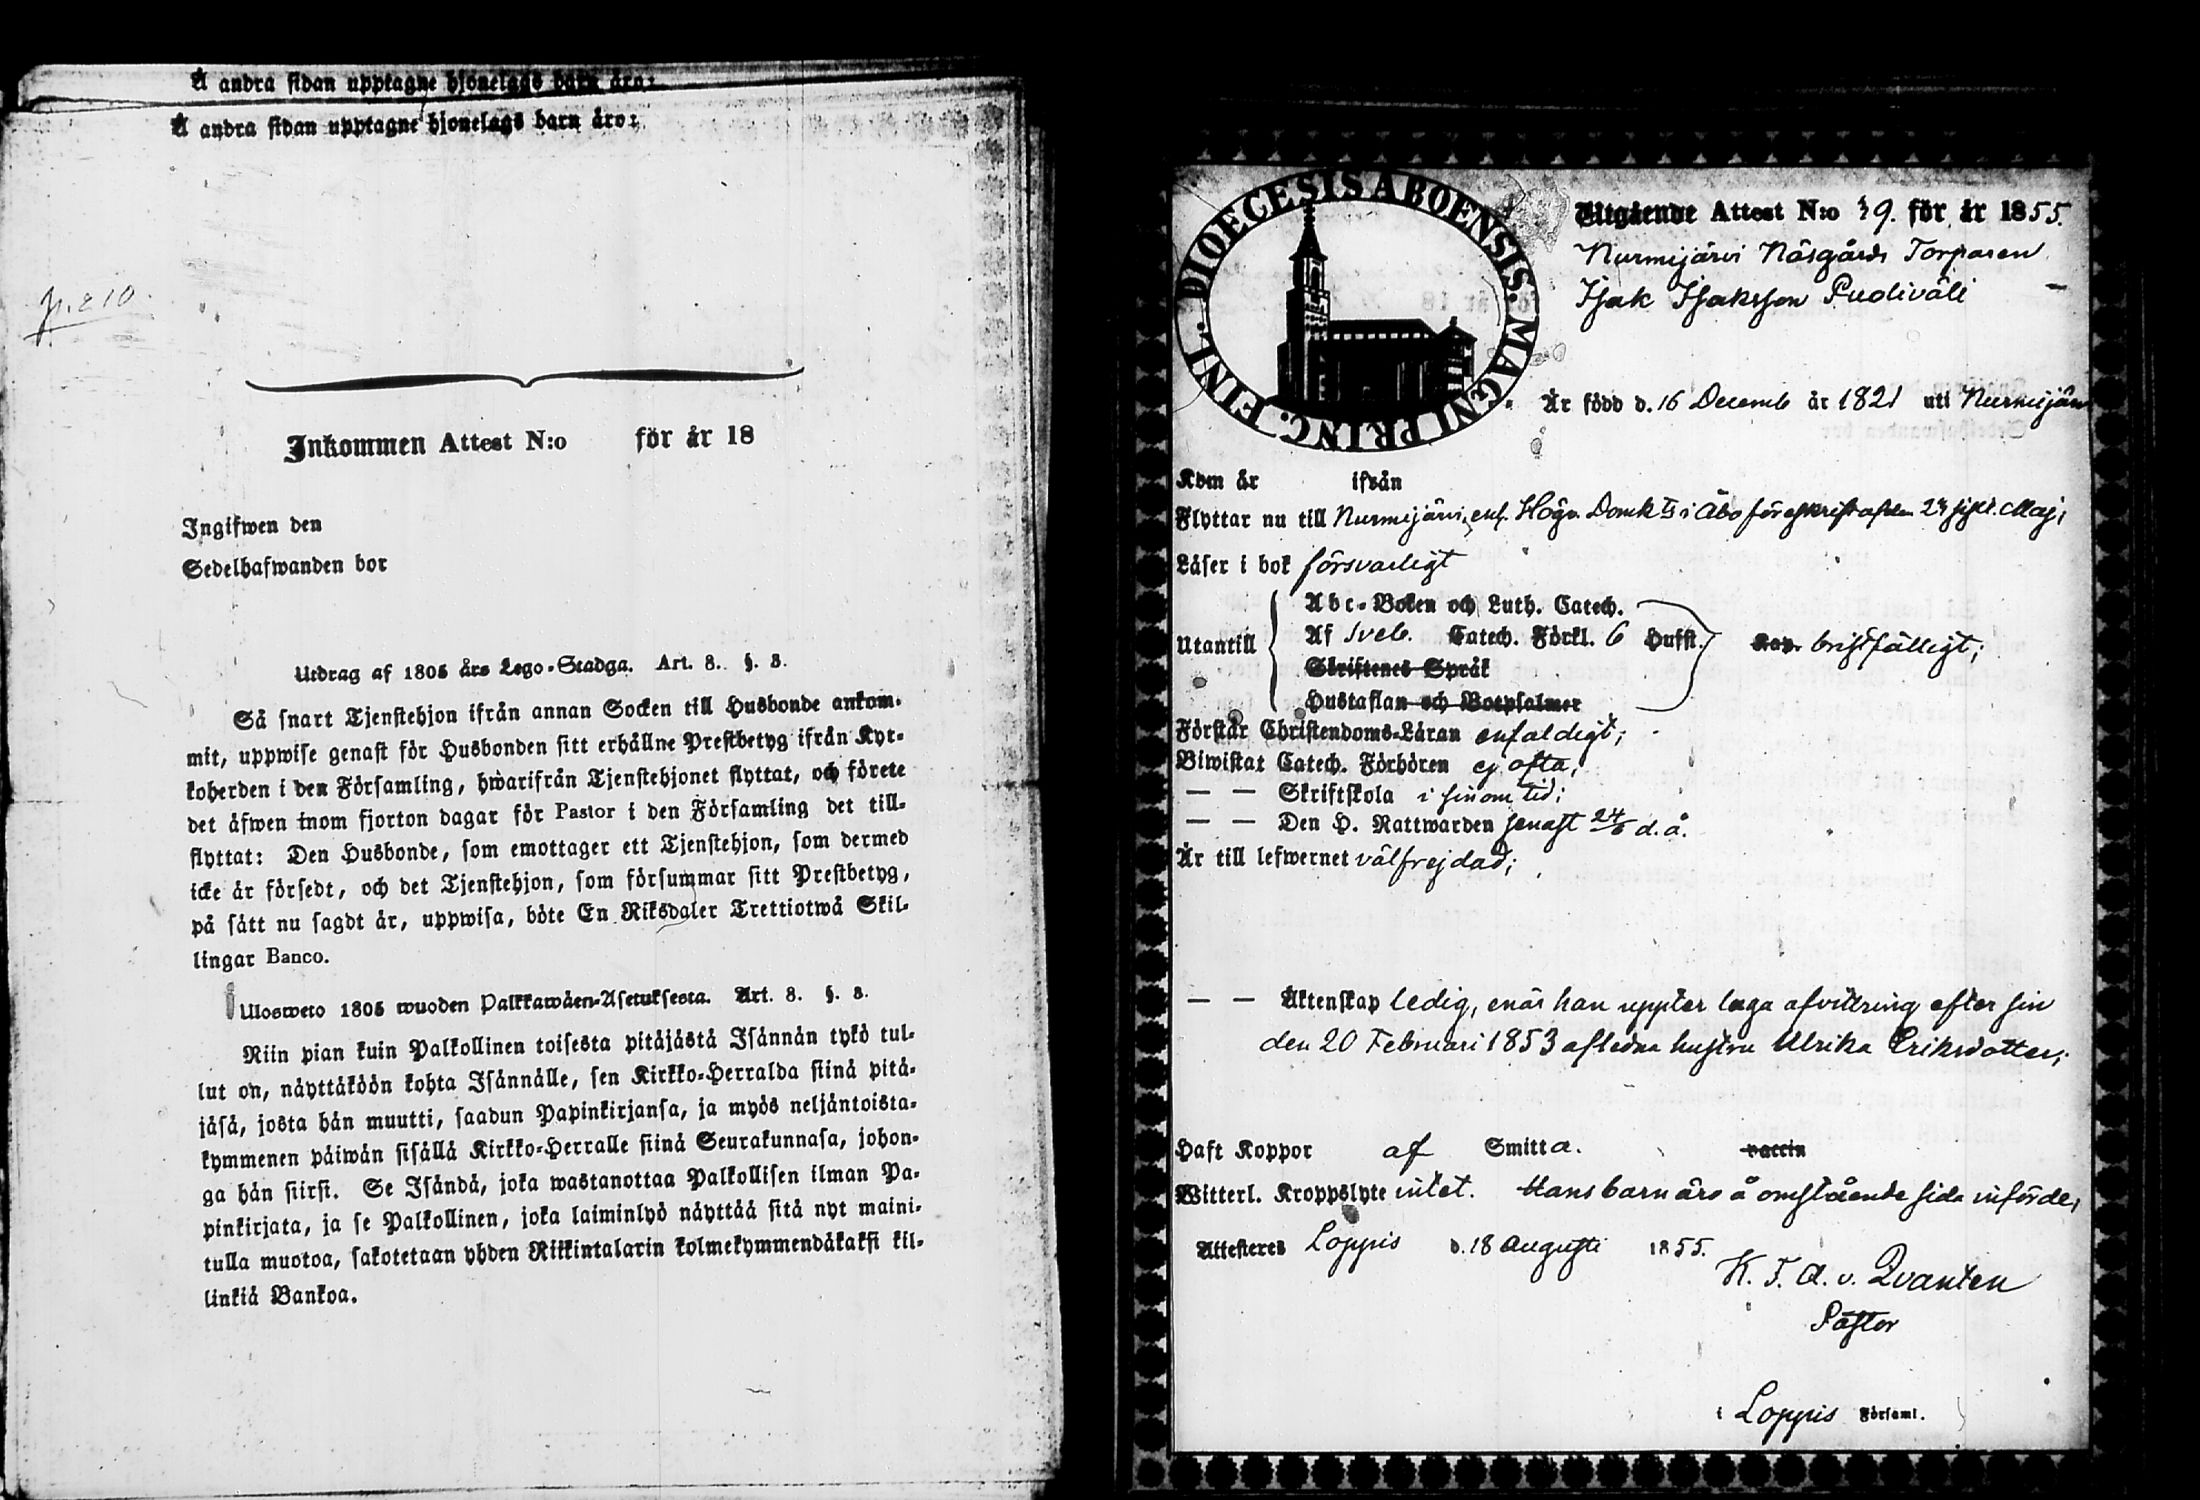 Å andra sidan upptagne hjonelags barn äro:
Å andra sidan upptagne hjonelags barn äro:
p. 210.
Inkommen Attest N:o för år 18
Ingifwen den
Sedelhafwanden bor
Utdrag af 1805 års Lego-Stadga. Art. 8. §. 3.
Så snart Tjenstehjon ifrån annan Socken till Husbonde ankom-
mit, uppwise genast för Husbonden sitt erhållne Prestbetyg ifrån Kyr-
koherden i den Församling, hwarifrån Tjenstehjonet flyttat, och förete
det äfwen inom fjorton dagar för Pastor i den Församling det till-
flyttat: Den Husbonde, som emottager ett Tjenstehjon, som dermed
icke är försedt, och det Tjenstehjon, som försummar sitt Prestbetyg,
på sätt nu sagdt är, uppwisa, böte En Riksdaler Trettiotwå Skil-
lingar Banco.
Ulosweto 1805 wuoden Palkkawäen-Asetuksesta. Art. 8. §. 3.
Niin pian kuin Palkollinen toisesta pitäjästä Isännän tykö tul-
lut on, näyttäköön kohta Isännälle, sen Kirkko-Herralda siinä pitä-
jäsä, josta hän muutti, saadun Papinkirjansa, ja myös neljäntoista-
kymmenen päiwän sisällä Kirkko-Herralle siinä Seurakunnasa, johon-
ga hän siirsi. Se Isändä, joka wastanottaa Palkollisen ilman Pa-
pinkirjata, ja se Palkollinen, joka laiminlyö näyttää sitä nyt maini-
tulla muotoa, sakotetaan yhden Rikkintalarin kolmekymmendäkaksi kil-
linkiä Bankoa.
DIOECESIS ABOENSIS. MAGNI PRINC. FINL.
Utgående Attest N:o 9. för år 1855.
Nurmijärvi Näsgårds Torparen
Isak Isaksson Pudiväli
Är född d. 16 Decemb år 1821 uti Nurmijärvi
Kom år ifrån
Flyttar nu till Nurmijärvi, enl. Högv. Domk. i Åbo föreskrift af den 24 sistl. Maj;
Läser i bok försvarligt
Utantill
Abc-Boken och Luth. Catech.
Af Sveb. Catech. Förkl. 6 Hufst.
Skriftenes Språk
Hustaflan och Botpsalmer
Kap. bristfälligt;
Förstår Christendoms-Läran enfaldigt;
Biwistat Catech. Förhören ej ofta;
— — Skriftskola i sinom tid;
— — Den H. Nattwarden senast 24/6 d. å.
Är till lefwernet välfrejdad;
— — Äktenskap ledig, enär han uppter laga afvittring efter sin
den 20 Februari 1853 aflidna hustru Ulrika Eriksdotter;
Haft Koppor af Smitta. vaccin
Witterl. Kroppslyte intet. Hans barn äro å omstående sida införde;
Attesteres Loppis d. 18 Augusti 1855.
K. F. A. v. Qvanten
Pastor
i Loppis Församl.